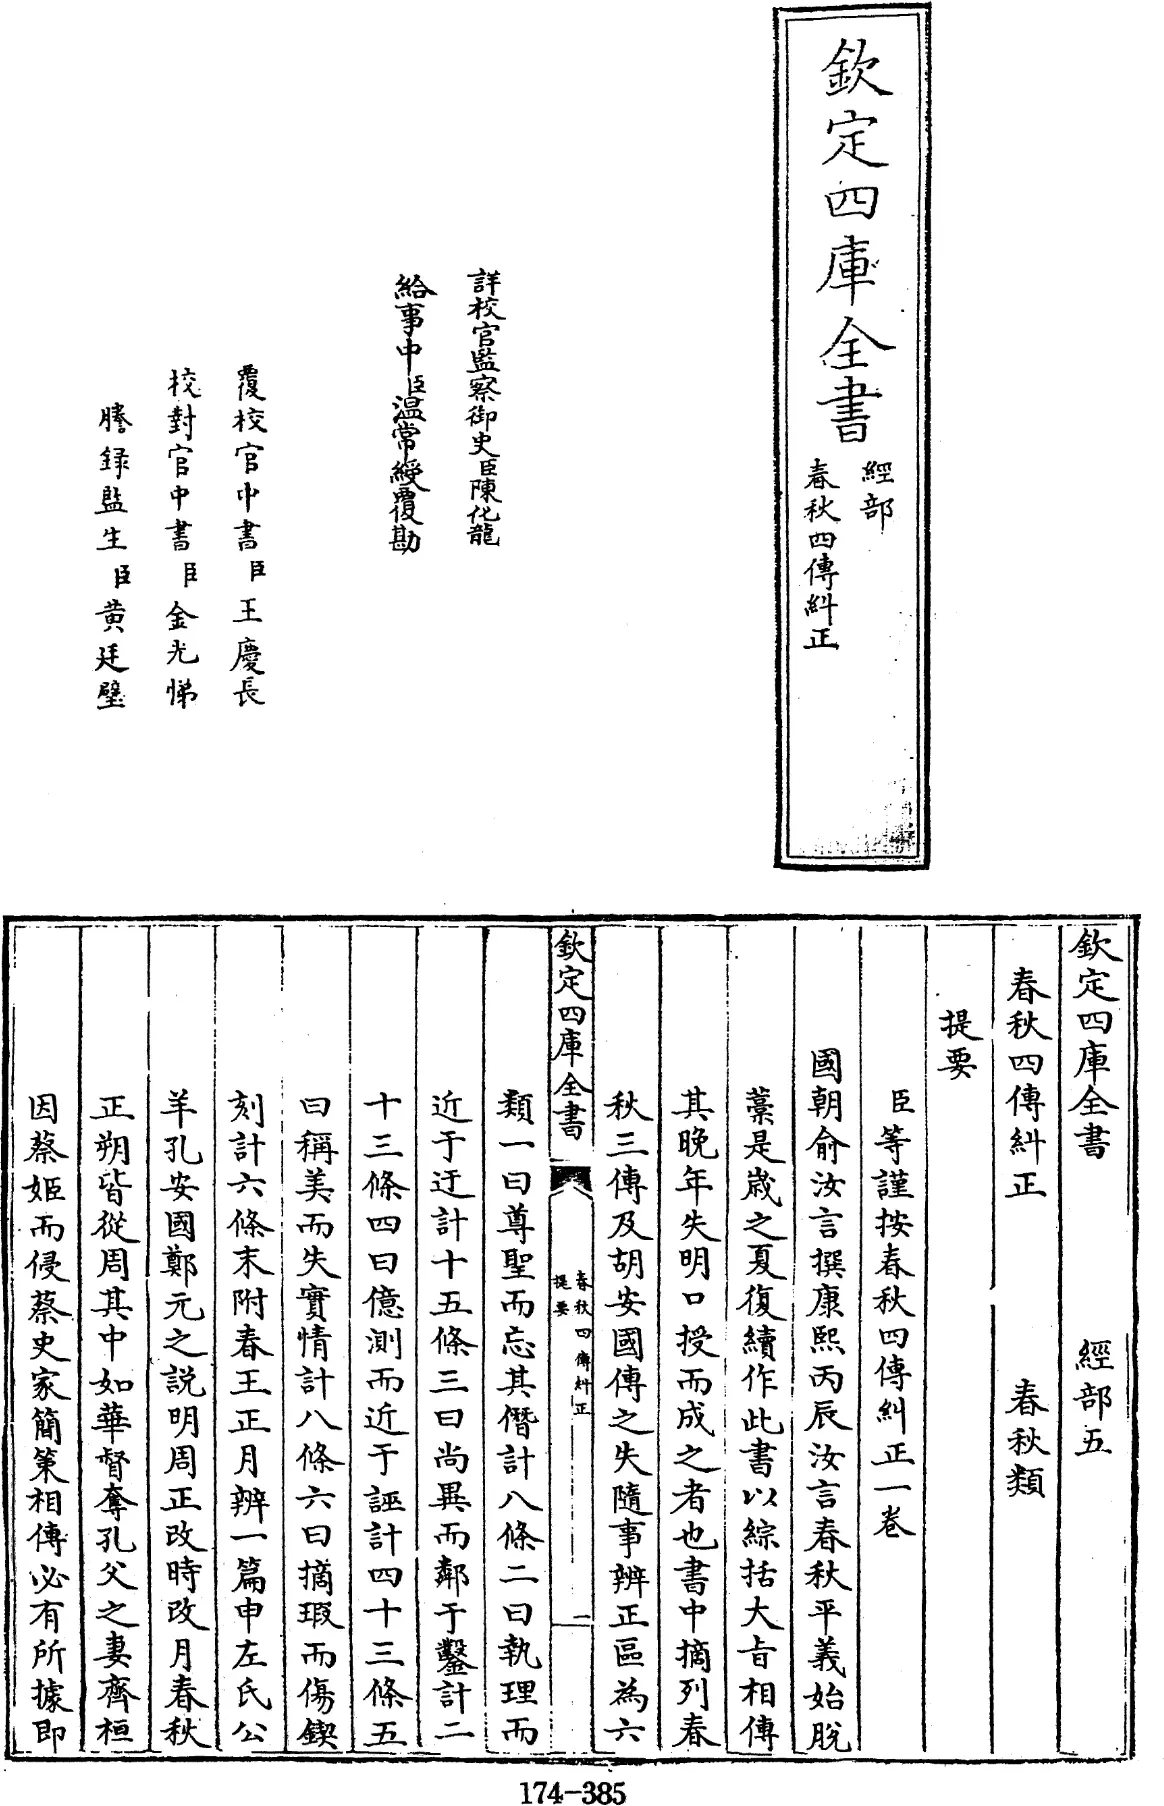 欽定四庫全書
經部
春秋四傳糾正
詳校官監察御史臣陳化龍
給事中臣溫常綬覆勘
覆校官中書臣王慶長
校對官中書臣金光悌
謄錄監生臣黃廷璧
欽定四庫全書 經部五
春秋四傳糾正 春秋類
提要
臣等謹按春秋四傳糾正一卷
國朝俞汝言撰康熙丙辰汝言春秋平義始脫
藁是歲之夏復續作此書以綜括大㫖相傳
其晚年失明口授而成之者也書中摘列春
秋三傳及胡安國傳之失隨事辨正區為六
欽定四庫全書
春秋四傳糾正
提要
一
類一曰尊聖而忘其僭計八條二曰執理而
近于迂計十五條三曰尚異而鄰于鑿計二
十三條四曰億測而近于誣計四十三條五
曰稱美而失實情計八條六曰摘瑕而傷鍥
刻計六條末附春王正月辨一篇申左氏公
羊孔安國鄭元之説明周正改時改月春秋
正朔皆從周其中如華督奪孔父之妻齊桓
因蔡姬而侵蔡史家簡策相傳必有所據即
174-385